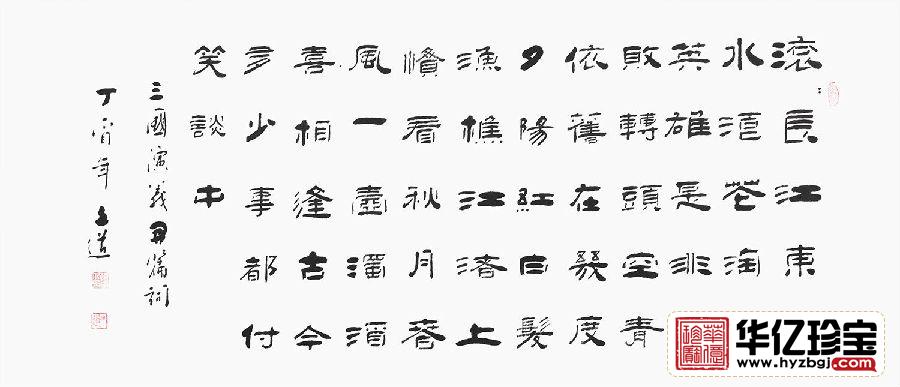 滚〻長江東
水浪花淘
英雄是非
敗轉頭空青
依舊在幾度
夕陽紅白髮
漁樵江渚上
慣看秋月春
風一壺濁酒
喜相逢古今
多少事都付
笑談中
三國演義開篇詞
丁酉年 立道
华亿珍宝
www.hyzbgj.com